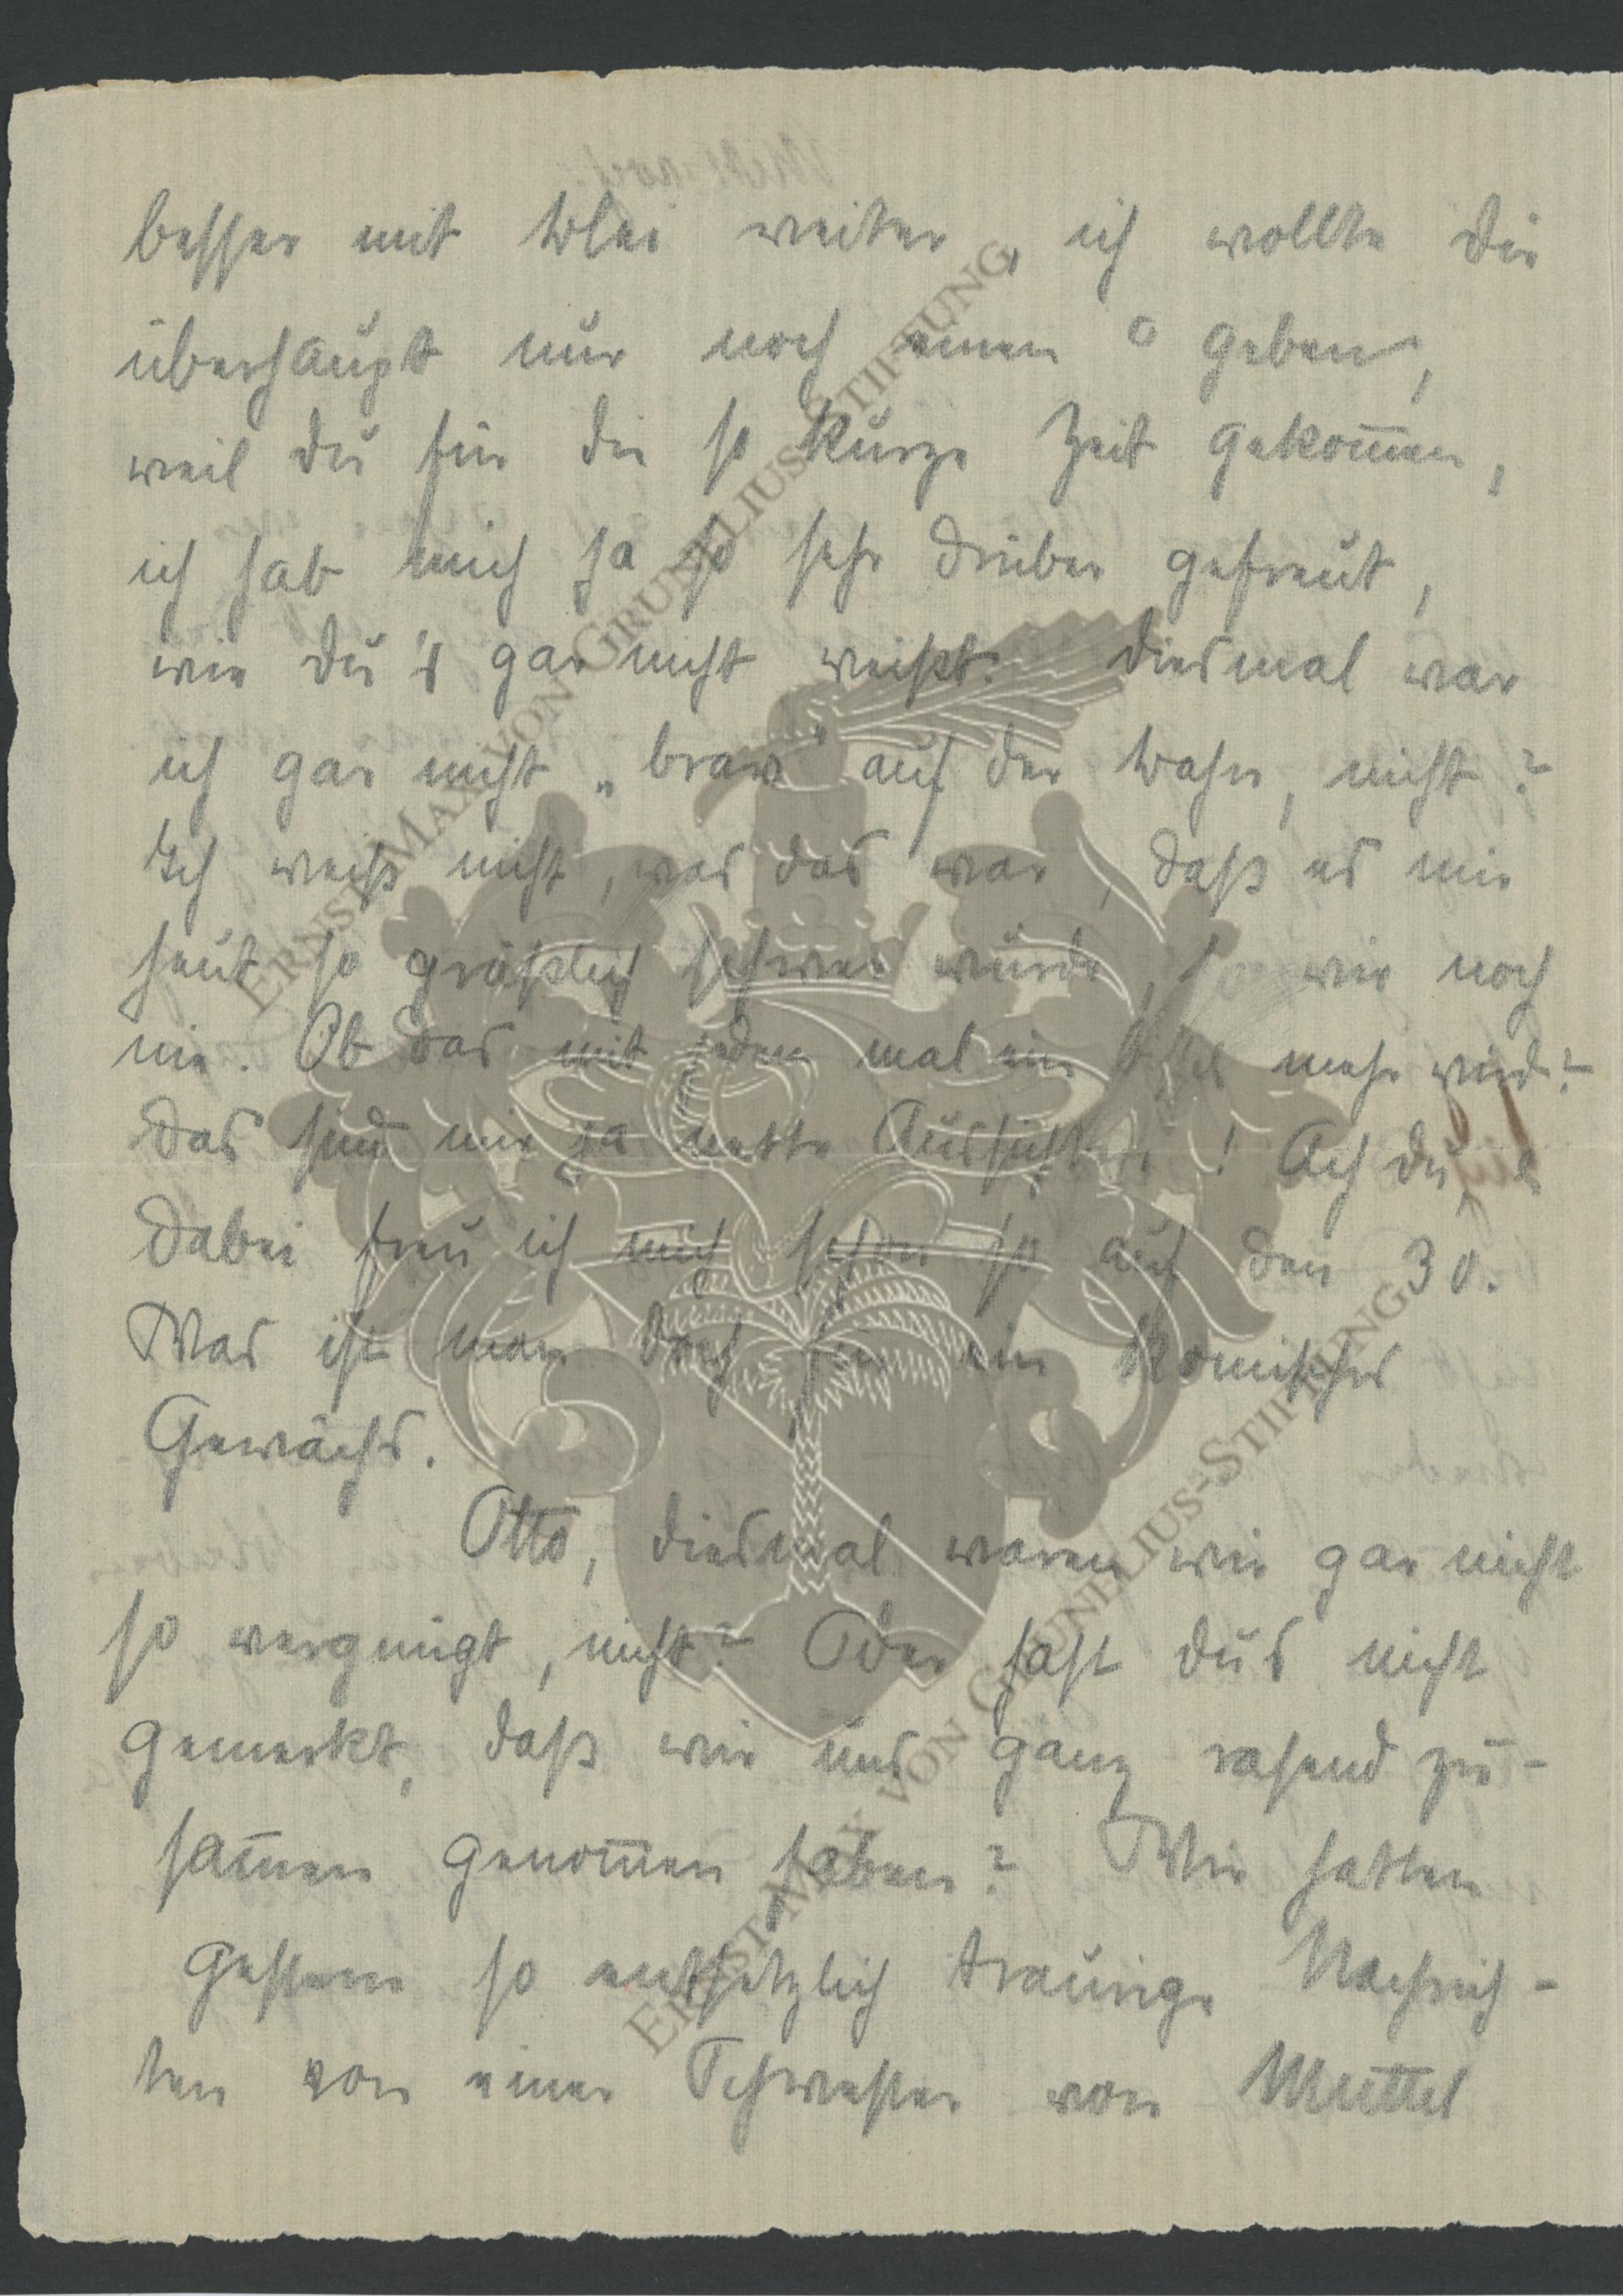 besser mit Blei weiter, ich wollte dir
überhaupt nur noch einen o geben,
weil du für die so kurze Zeit gekom̅en,
ich hab mich ja so sehr drüber gefreut,
wie du's gar nicht weißt. Diesmal war
ich gar nicht „brav" auf der Bahn, nicht?
Ich weiß nicht, was das war, daß es mir
heut so gräßlich schwer wurde, wie noch
nie. Ob das mit jedem mal ein bissel mehr wird?
Das sind mir ja nette Aussichten! Ach du,
dabei freu ich mich schon so auf den 30.
Was ist man doch für ein komisches
Gewächs.
Otto, diesmal waren wir gar nicht
so vergnügt, nicht? Oder hast dus nicht
gemerkt, daß wir uns ganz rasend zu-
sam̅en genom̅en haben? Wir hatten
gestern so entsetzlich traurige Nachrich-
ten von einer Schwester von Muttel
ERNST MAX VON GRUNELIUS-STIFTUNG
ERNST MAX VON GRUNELIUS-STIFTUNG